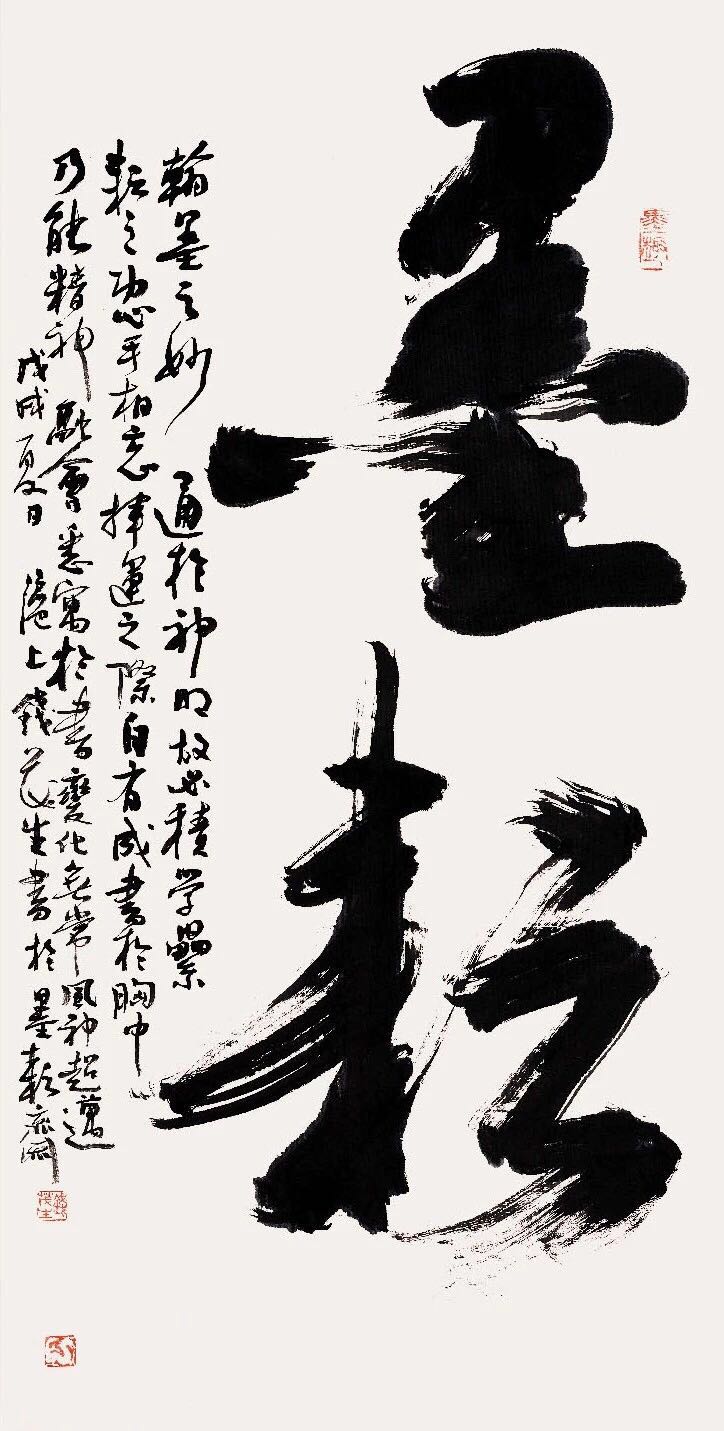 墨耘
翰墨之妙通於神明故必積学累
耘之功心手相忘揮運之際自有成書於胸中
乃能精神融會悉寓於書變化無常風神超邁
戊戌夏日 滬上錢茂生書於墨耘齋